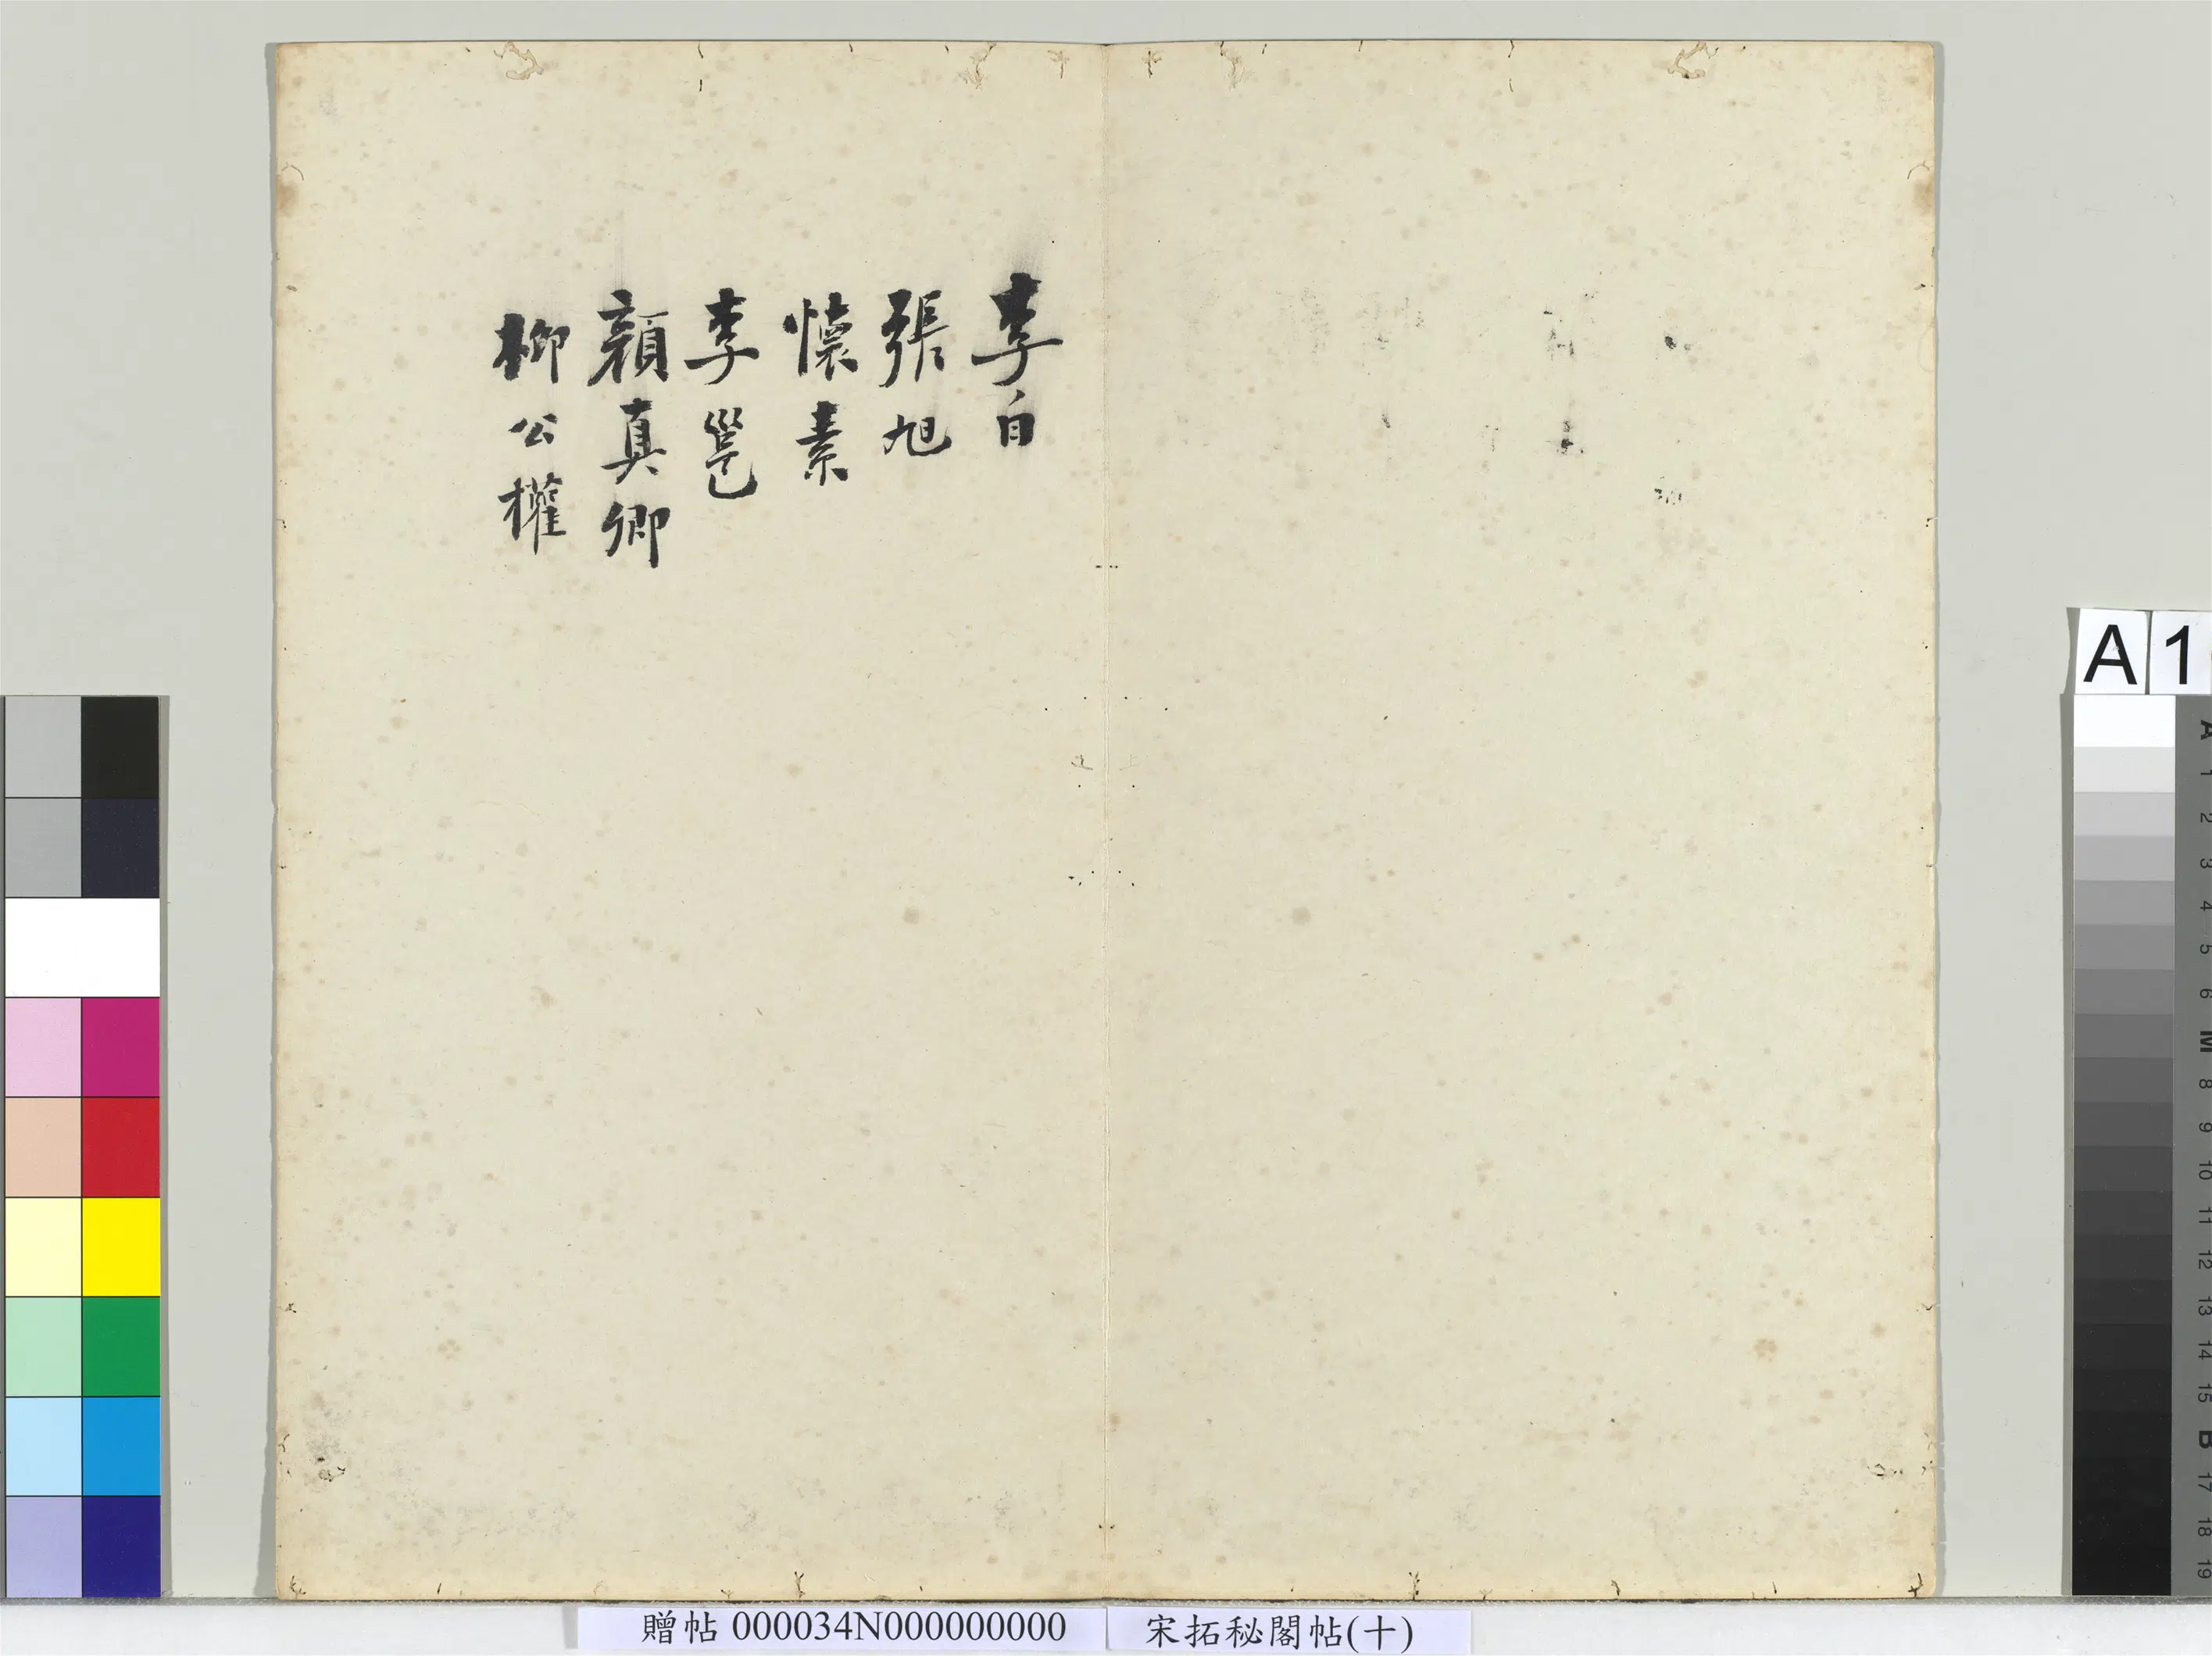 李白
張旭
懷素
李邕
顏真卿
柳公權
贈帖 000034N000000000
宋拓秘閣帖(十)
A 1
A
1
2
3
4
5
6
M
8
9
10
11
12
13
14
15
B
17
18
19